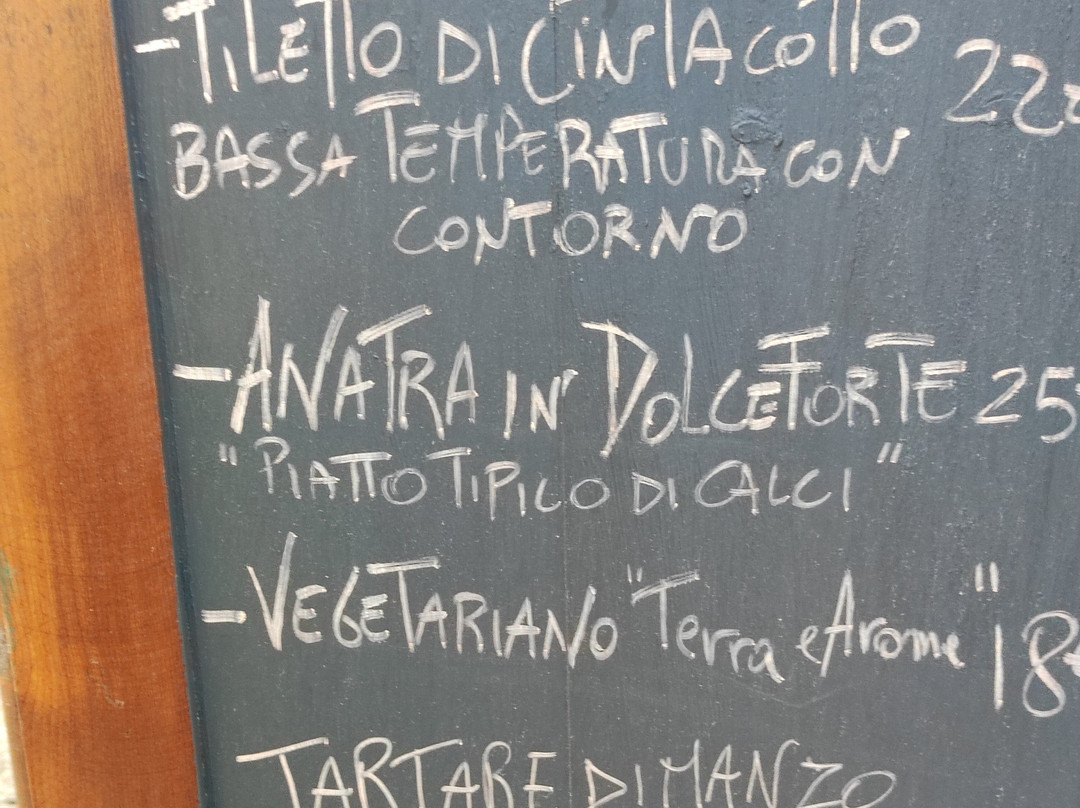 - FILETTO DI CINTA COTTO 22€
BASSA TEMPERATURA CON
CONTORNO
- ANATRA IN DOLCEFORTE 25
"PIATTO TIPICO DI CALCI"
- VEGETARIANO "Terra e Arome" 18€
TARTARE DI MANZO